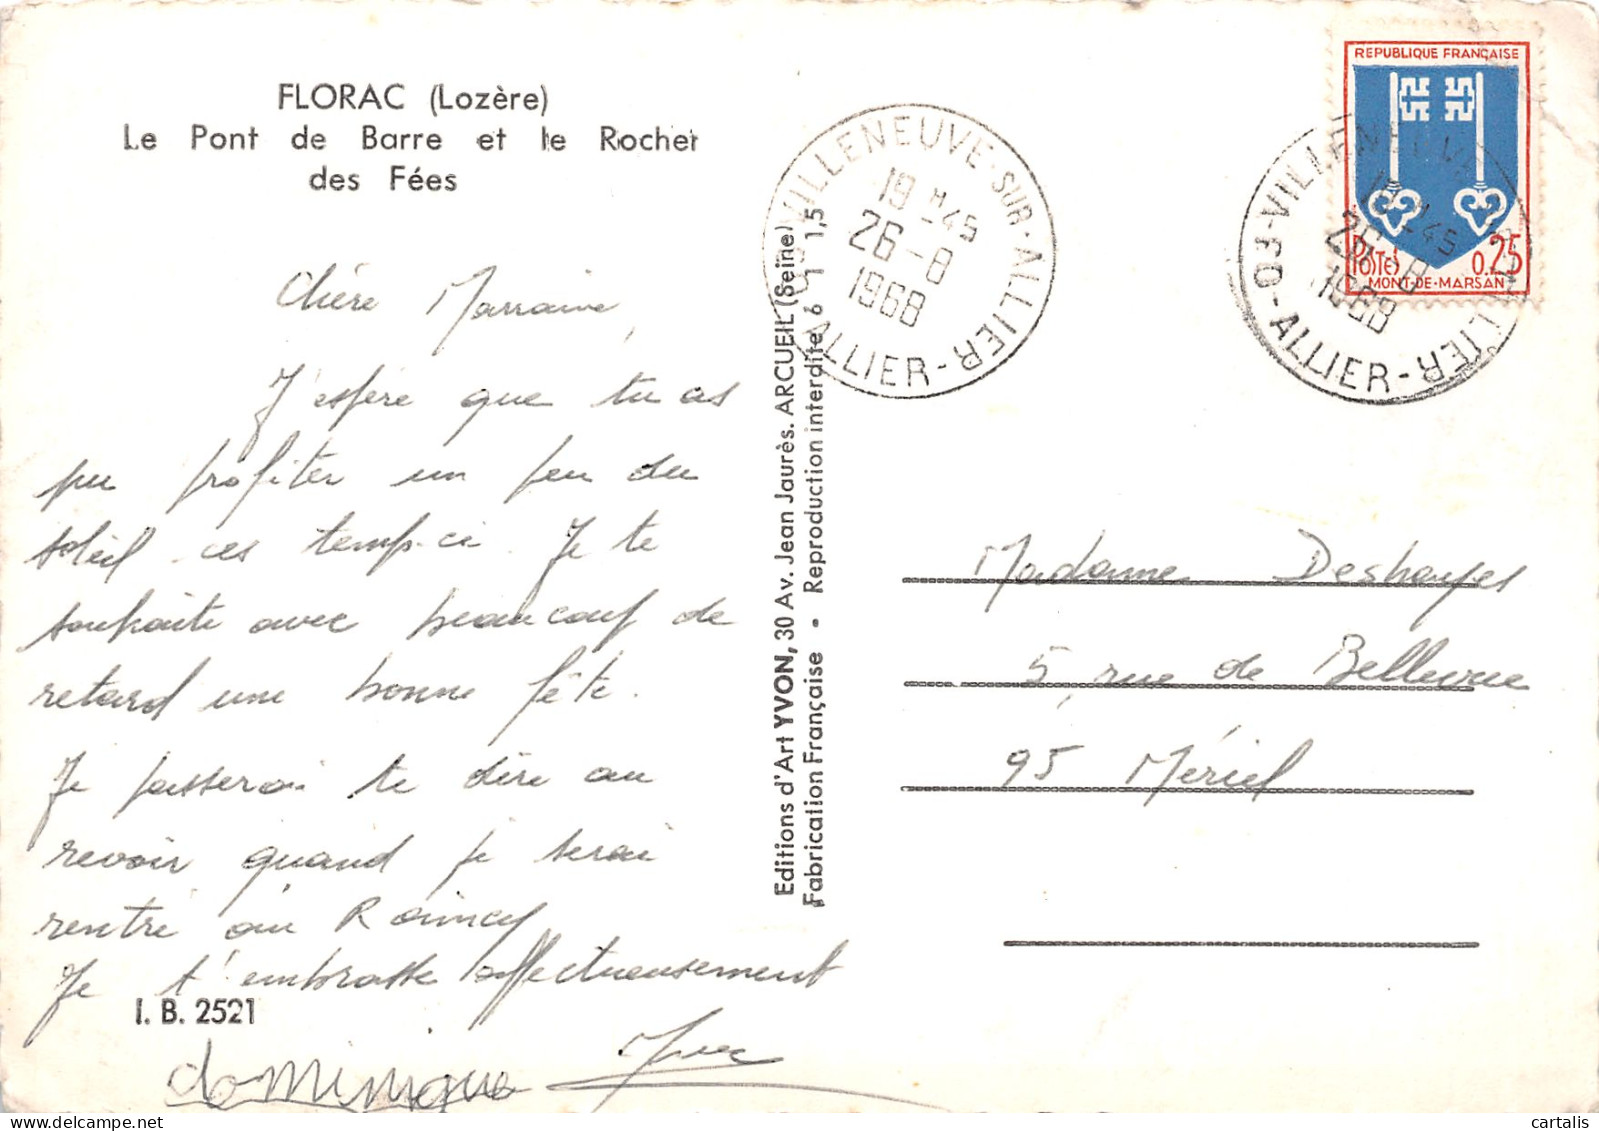 FLORAC (Lozère)
Le Pont de Barre et le Rocher
des Fées
Chère Marraine,
J'espère que tu as
pu profiter un peu du
soleil ces temps-ci. Je te
souhaite avec beaucoup de
retard une bonne fête.
Je passerai te dire au
revoir quand je serai
rentré au Raincy
Je t'embrasse affectueusement
I. B. 2521
dominique
Editions d'Art YVON, 30 Av. Jean Jaurès. ARCUEIL (Seine)
Fabrication Française • Reproduction interdite 6 1 1,5
VILLENEUVE-SUR-ALLIER
19 H -45
26 -8
1968
ALLIER-R
REPUBLIQUE FRANÇAISE
POSTES 0.25
MONT-DE-MARSAN
VILLENEUVE
19 H -45
26 -8
1968
ALLIER-R
Madame Deshayes
5, rue de Bellevue
95 Mériel
delcampe.net
cartalis